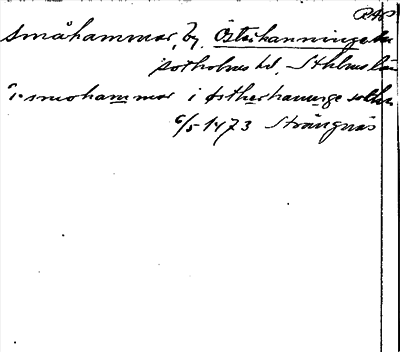 Småhammar, by, Österhanninge sn
Sotholms hd, Sthlms län
i smohammar i østherhaninge sokn
6/5 1473 Strängnäs